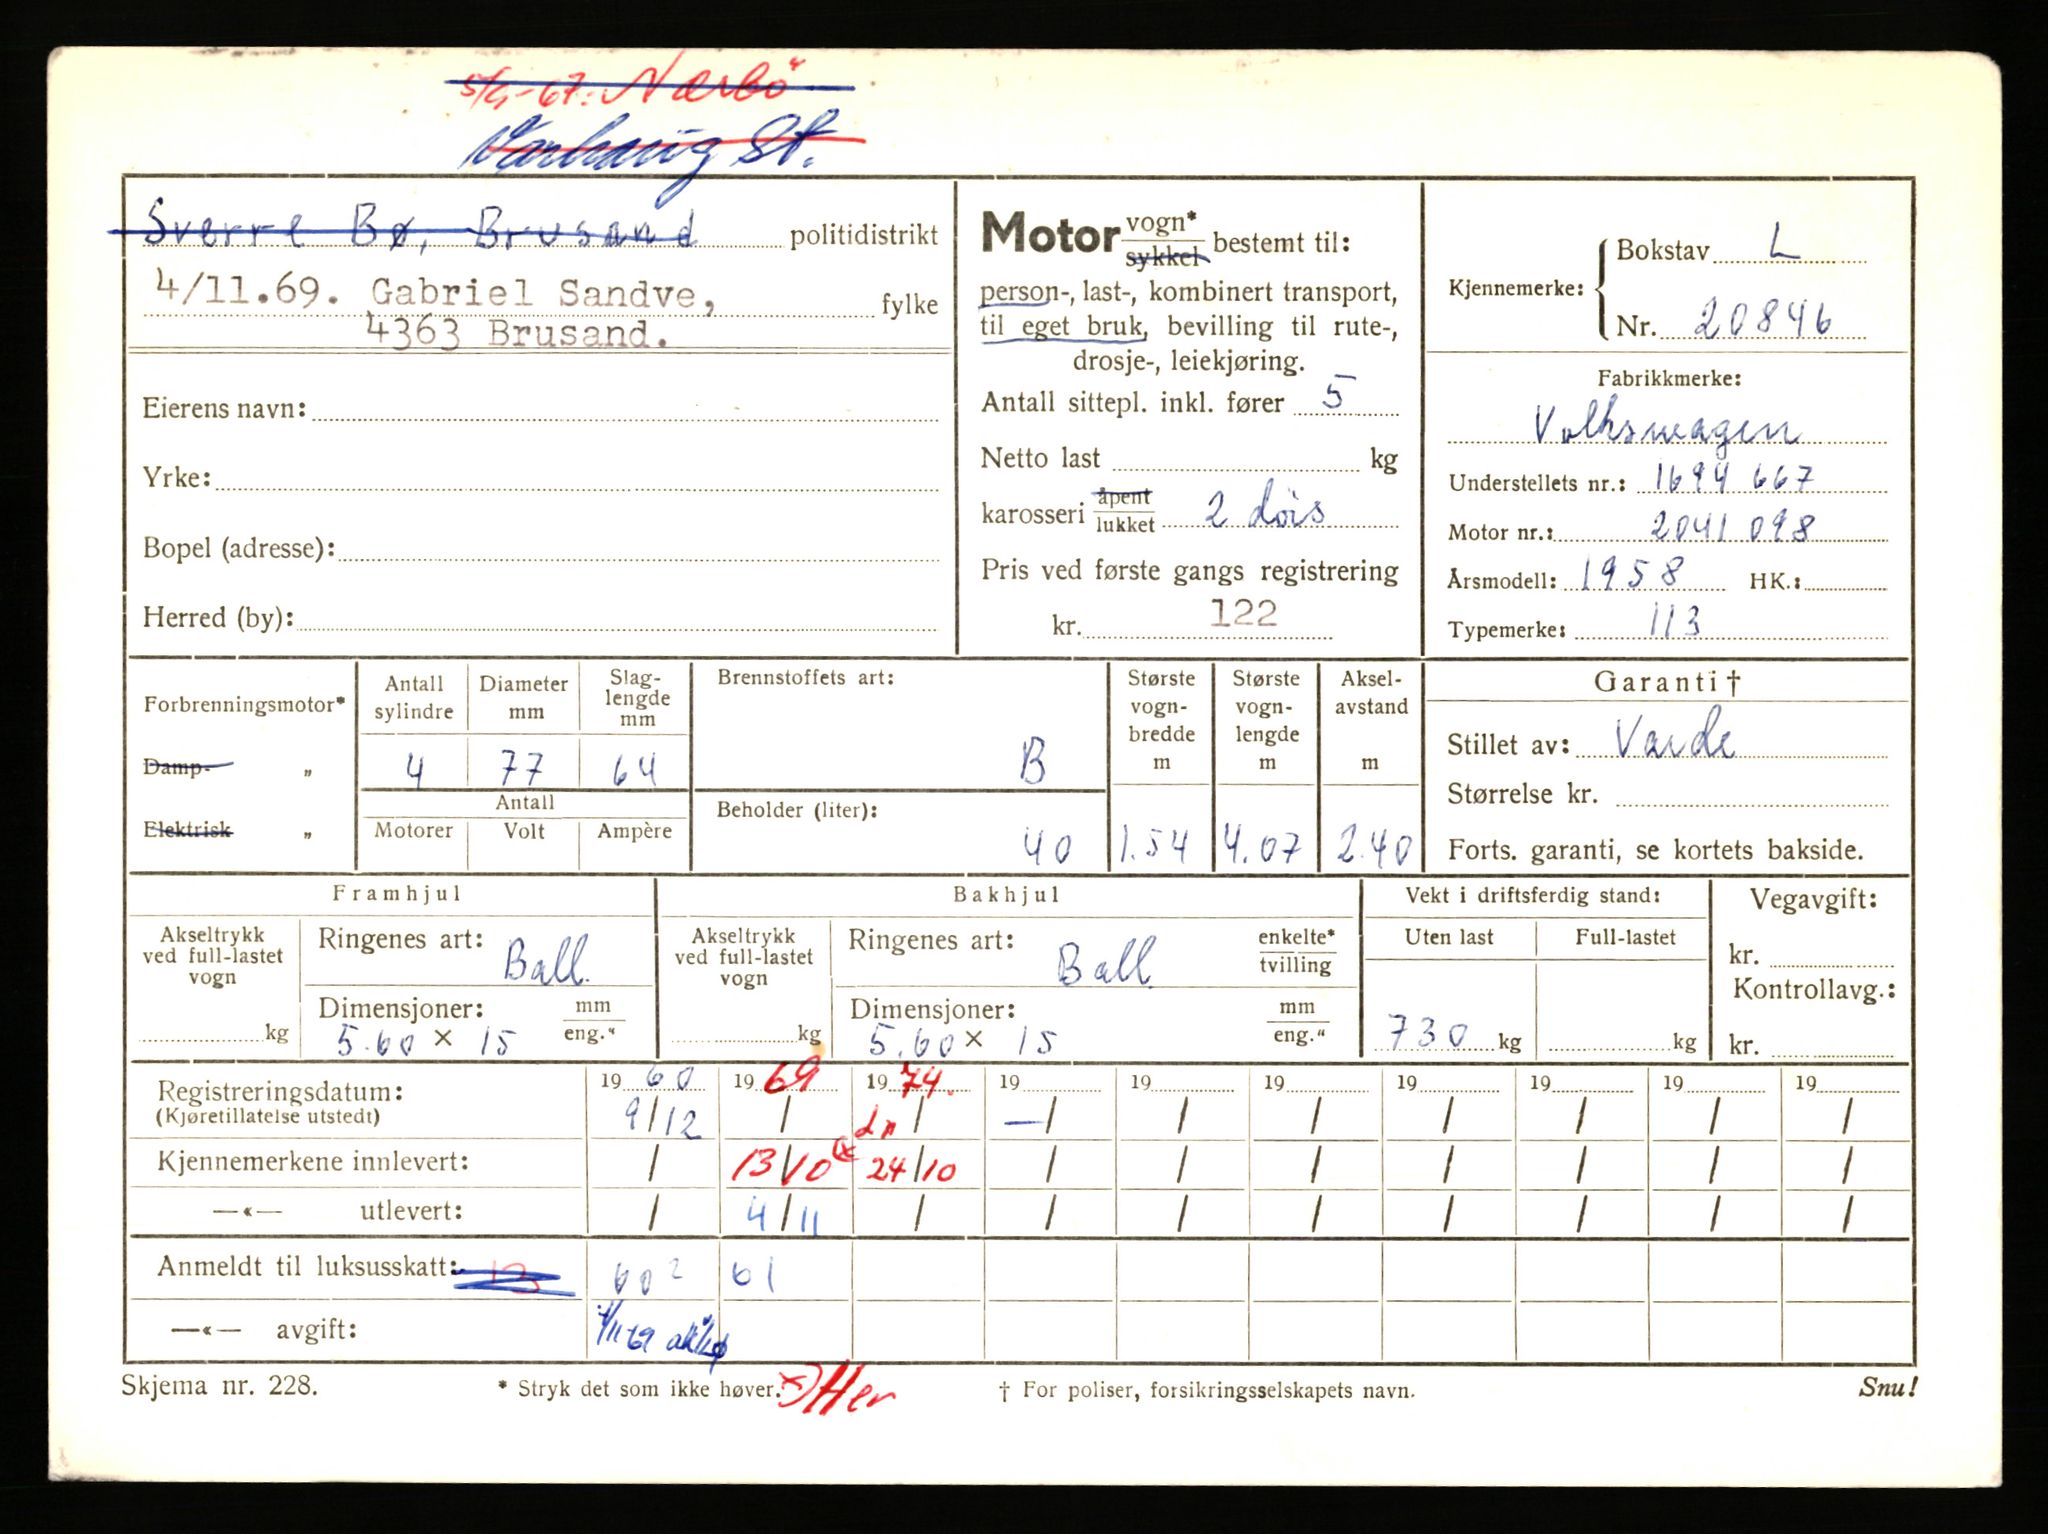 5/9-67: Nærbö
Varhaug St.
Sverre Bø, Brusand politidistrikt
4/11.69. Gabriel Sandve, fylke
4363 Brusand.
Eierens navn:
Yrke:
Bopel (adresse):
Herred (by):
Motor vogn* sykkel bestemt til:
person-, last-, kombinert transport,
til eget bruk, bevilling til rute-,
drosje-, leiekjøring.
Antall sittepl. inkl. fører 5
Netto last kg
karosseri åpent lukket 2 dørs
Pris ved første gangs registrering
kr. 122
Kjennemerke: Bokstav L
Nr. 20846
Fabrikkmerke:
Volkswagen
Understellets nr.: 1694 667
Motor nr.: 2041 098
Årsmodell: 1958 HK.:
Typemerke: 113
Forbrenningsmotor*
Damp- „
Elektrisk „
Antall sylindre Diameter mm Slag-lengde mm
4 77 64
Antall
Motorer Volt Ampère
Brennstoffets art:
B
Beholder (liter):
40
Største vogn-bredde m
1.54
Største vogn-lengde m
4.07
Aksel-avstand m
2.40
Garanti †
Stillet av: Varde
Størrelse kr.
Forts. garanti, se kortets bakside.
Framhjul
Akseltrykk ved full-lastet vogn kg
Ringenes art: Ball.
Dimensjoner: mm eng."
5.60 × 15
Bakhjul
Akseltrykk ved full-lastet vogn kg
Ringenes art: Ball enkelte* tvilling
Dimensjoner: mm eng."
5.60 × 15
Vekt i driftsferdig stand:
Uten last Full-lastet
730 kg kg
Vegavgift:
kr.
Kontrollavg.:
kr.
Registreringsdatum: 19 60 19 69 19 74. 19 19 19 19 19 19 19
(Kjøretillatelse utstedt) 9/12 / / / / / / / / /
Kjennemerkene innlevert: / 13/10 24/10 / / / / / / /
—«— utlevert: / 4/11 / / / / / / / /
Anmeldt til luksusskatt: 60² 61
—«— avgift: 4/11-69
Skjema nr. 228. * Stryk det som ikke høver. x) Her † For poliser, forsikringsselskapets navn. Snu!